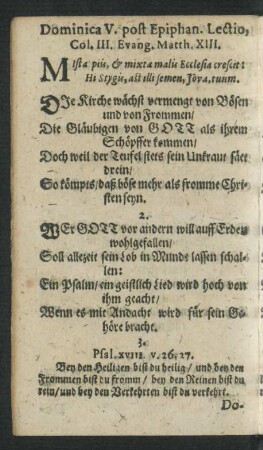 Dominica V. post Epiphan. Lectio,
Col. III. Evang. Matth. XIII.
MIsta piis, & mixta malis Ecclesia crescit:
Hi Stygii, ast illi semen, Jova, tuum.
DIe Kirche wächst vermengt von Bösen
und von Frommen/
Die Gläubigen von GOTT als ihrem
Schöpffer kommen/
Doch weil der Teufel stets sein Unkraut säet
drein/
So kömpts/ daß böse mehr als fromme Chri-
sten seyn.
2.
WEr GOTT vor andern will auff Erden
wohlgefallen/
Soll allezeit sein Lob in Munde lassen schal-
len:
Ein Psalm/ ein geistlich Lied wird hoch von
ihm geacht/
Wenn es mit Andacht wird für sein Ge-
höre bracht.
3.
Psal. xviii. v. 26. 27.
Bey den Heiligen bist du heilig/ und bey den
Frommen bist du fromm/ bey den Reinen bist du
rein/ und bey den Verkehrten bist du verkehrt.
Do-